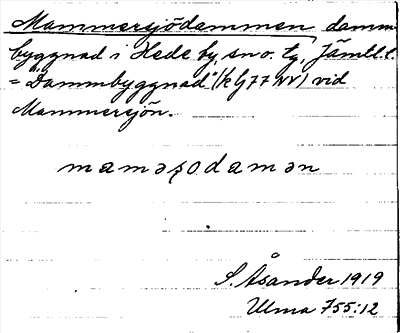 Mammersjödammen damm-
byggnad i Hede by, sn o. tg, Jämtl. l.
= "Dammbyggnad" (k G77 NV) vid
Mammersjön.
maməʂodamən
S. Åsander 1919
Ulma 755:12